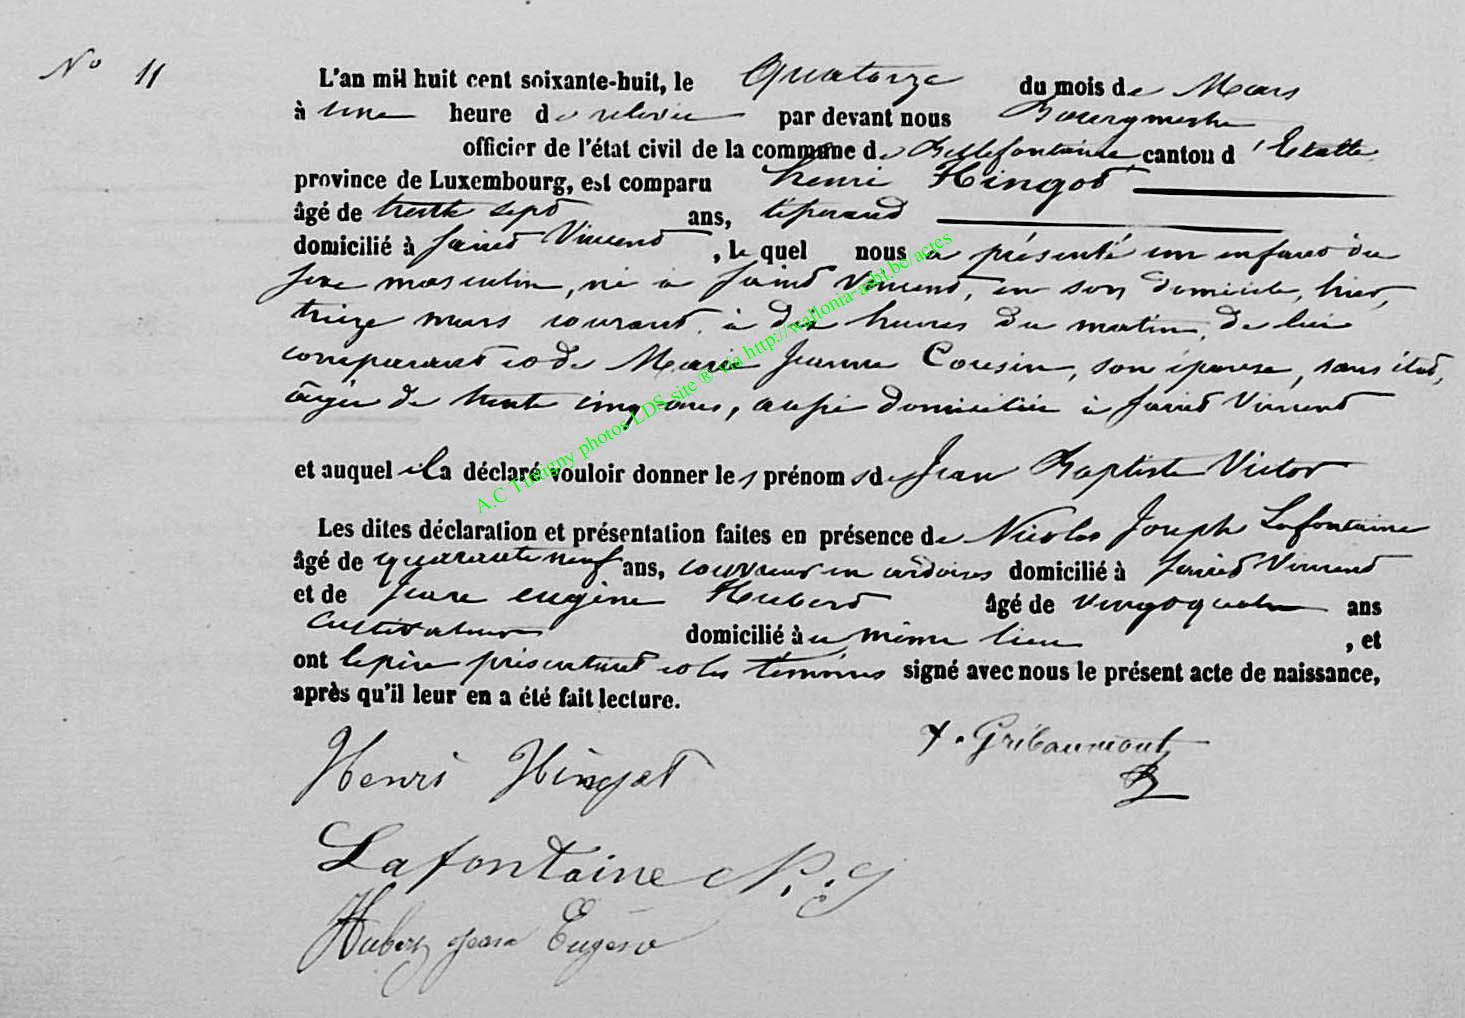 N° 11
L'an mil huit cent soixante-huit, le Quatorze du mois de Mars
à une heure de relevée par devant nous Bourgmestre
officier de l'état civil de la commune de Bellefontaine canton d'Etalle
province de Luxembourg, est comparu henri Hingot
âgé de trente sept ans, tisserand
domicilié à Saint Vincent, le quel nous a présenté un enfant du
sexe masculin, né à Saint Vincent, en son domicile, hier,
treize mars courant, à dix heures du matin, de lui
comparant et de Marie Jeanne Cousin, son épouse, sans état,
âgée de trente cinq ans, aussi domiciliée à Saint Vincent
et auquel il a déclaré vouloir donner les prénoms de Jean Baptiste Victor
Les dites déclaration et présentation faites en présence de Nicolas Joseph Lafontaine
âgé de quarante neuf ans, couvreur en ardoises domicilié à Saint Vincent
et de Jean eugène Hubert âgé de vingt quatre ans
Cultivateur domicilié à u même lieu, et
ont le père présentant et les témoins signé avec nous le présent acte de naissance,
après qu'il leur en a été fait lecture.
Henri Hingot
Gribaumont
Lafontaine N. J
Hubert Jean Eugène
A.C Tintigny photos LDS site ® via http://wallonia-asbl.be/actes